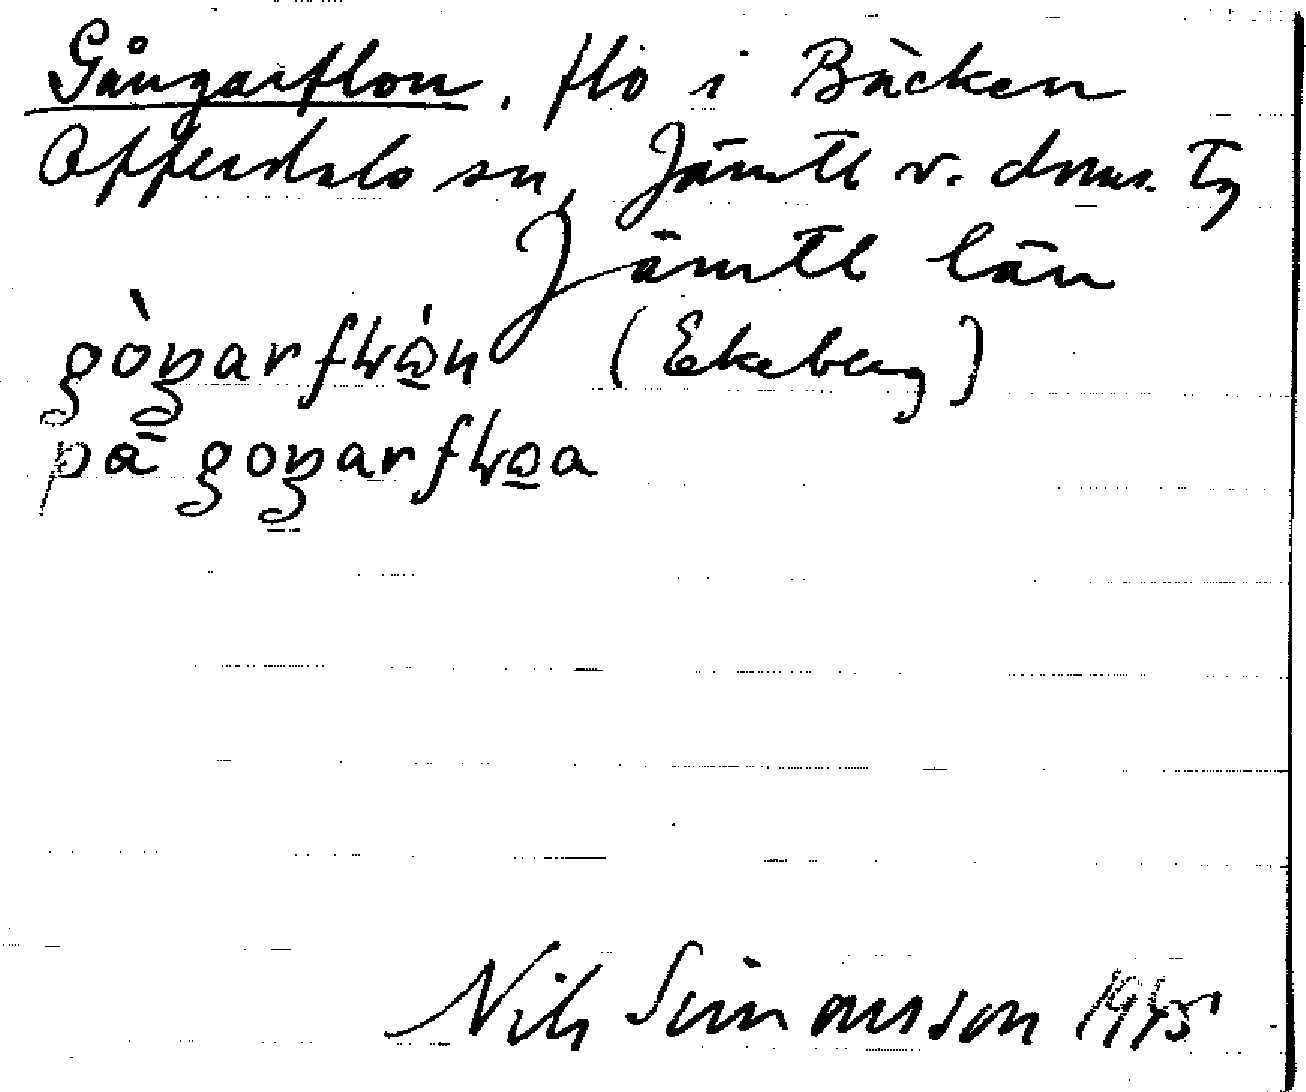 Gångarflon, flo i Bäcken
Offerdals sn, Jämtl v. doms. tg
Jämtl län
gòŋarfɽὼn (Ekeberg)
på goŋarfɽωa
Nils Simonsson 1945